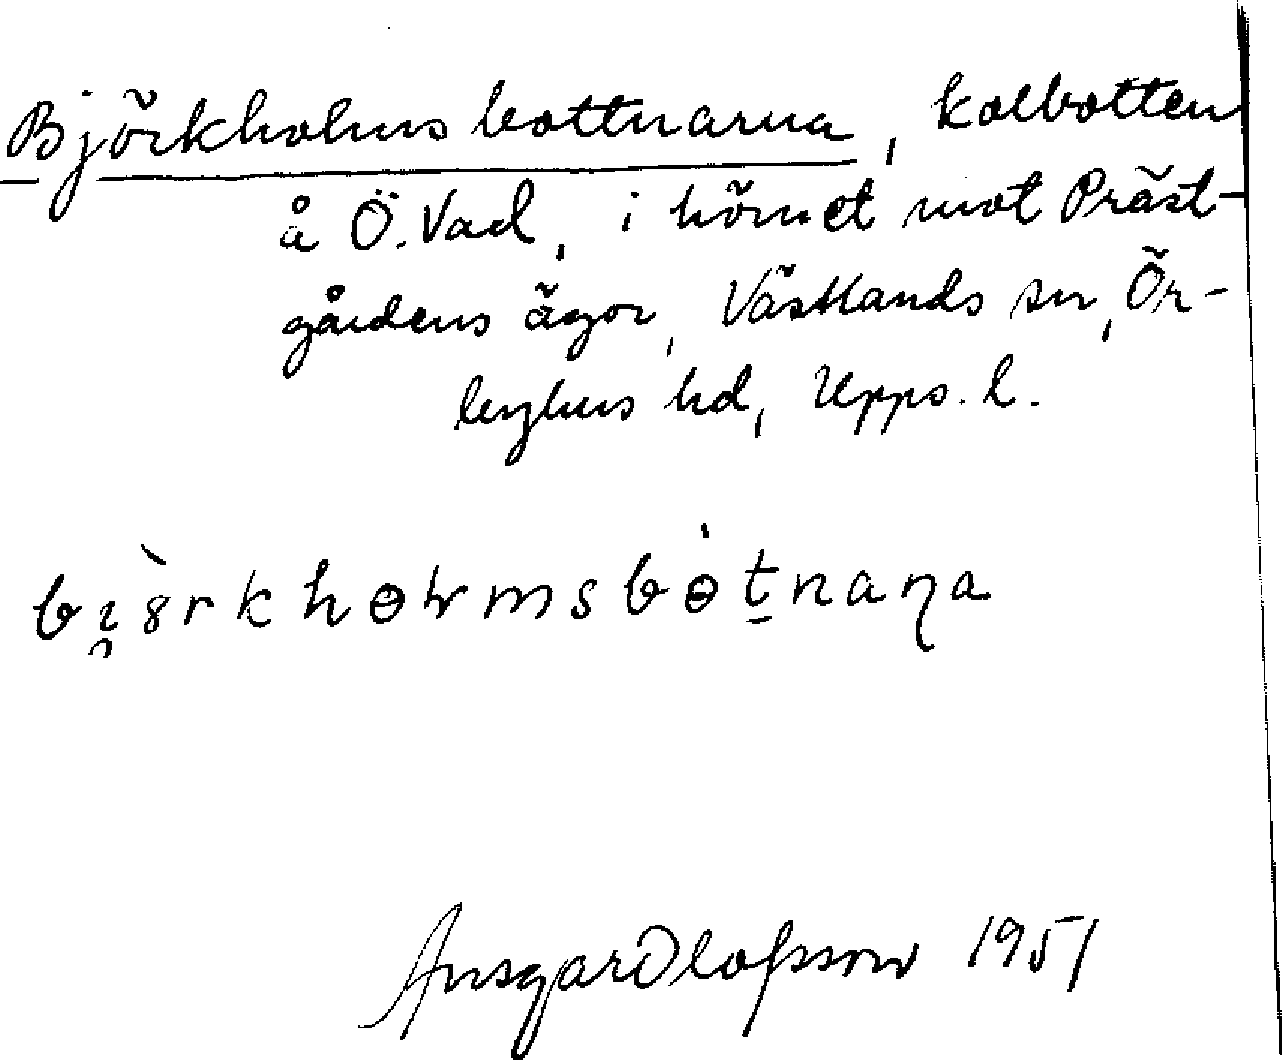 Björkholmsbottnarna, kolbotten
å Ö. Vad, i hörnet mot Präst-
gårdens ägor, Västlands sn, Ör-
byhus hd, Upps. l.
Ansgar Olofsson 1951